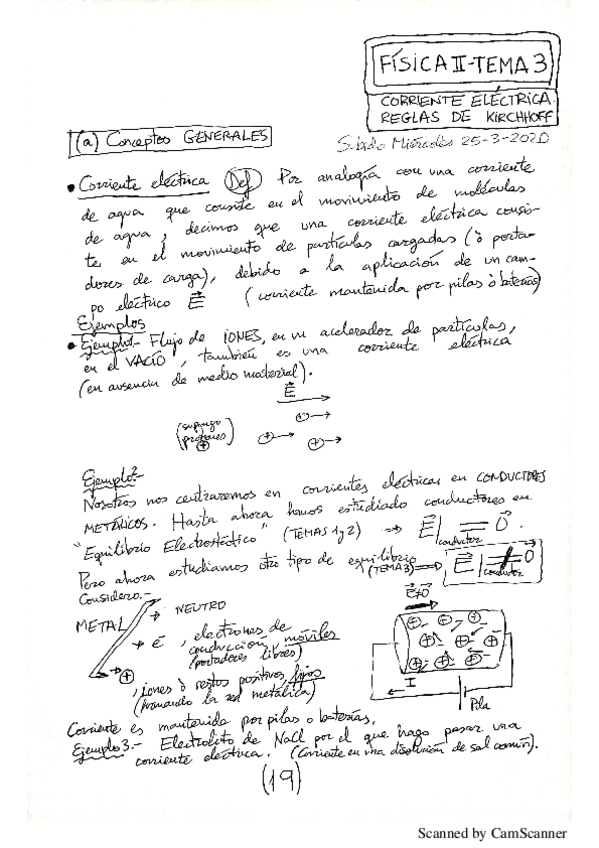 FÍSICA II-TEMA 3
CORRIENTE ELÉCTRICA
REGLAS DE KIRCHHOFF
(a) Conceptos GENERALES
Miércoles 25-3-2020
• Corriente eléctrica (Def) Por analogía con una corriente
de agua que consiste en el movimiento de moléculas
de agua, decimos que una corriente eléctrica consis-
te en el movimiento de partículas cargadas (ò porta-
dores de carga), debido a la aplicación de un cam-
po eléctrico E (corriente mantenida por pilas ò baterías)
Ejemplos
• Ejemplo1- Flujo de IONES, en un acelerador de partículas,
en el VACÍO, también es una corriente eléctrica
(en ausencia de medio material).
E
(supongo
protones)
+
+ + +
Ejemplo2-
Nosotros nos centraremos en corrientes eléctricas en CONDUCTORES
METÁLICOS. Hasta ahora hemos estudiado conductores en
"Equilibrio Electrostático" (TEMAS 1 y 2) ⇒ E|conductor = 0.
Pero ahora estudiamos otro tipo de equilibrio (TEMA 3) ⇒ E|conductor ≠ 0
Considero.-
E≠0
METAL
→ NEUTRO
→ e-, electrones de
conducción, móviles
(portadores libres)
→ +, iones ò restos positivos, fijos
(formando la red metálica)
I
Pila
Corriente es mantenida por pilas o baterías.
Ejemplo 3.- Electrolito de NaCl por el que hago pasar una
corriente eléctrica. (Corriente en una disolución de sal común).
(19)
Scanned by CamScanner